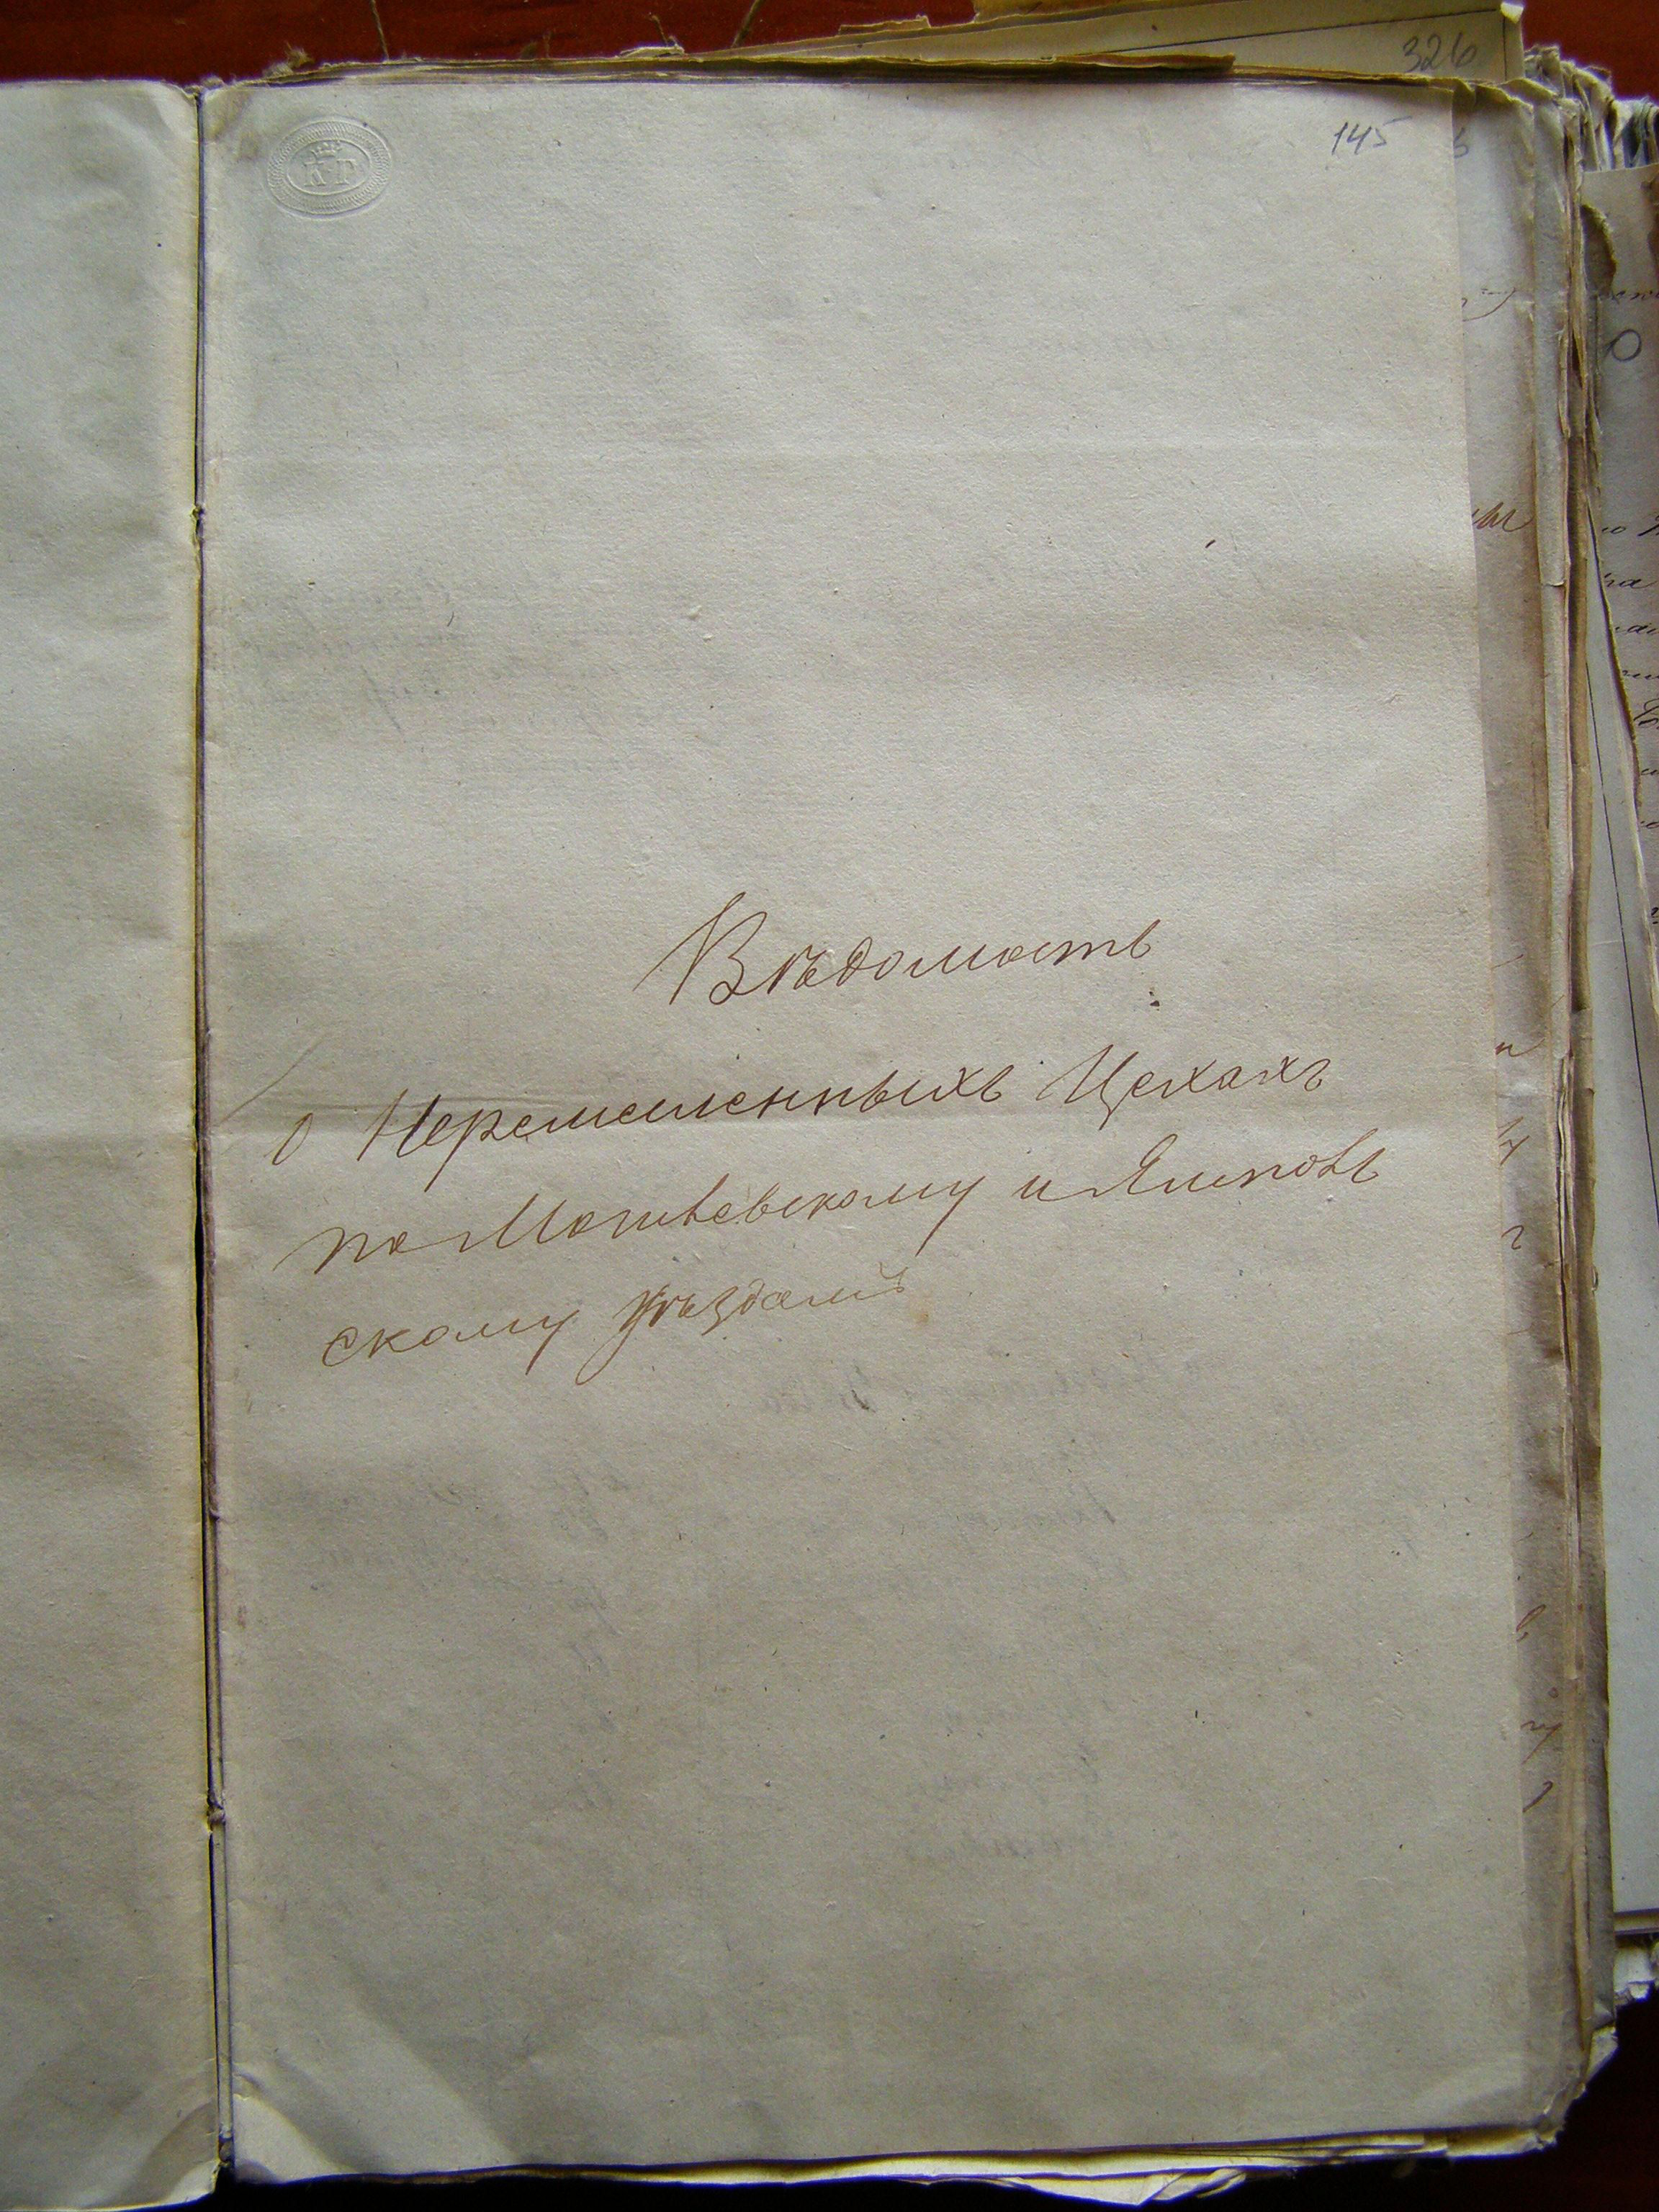 326
145
Вѣдомость
о Неремесленныхъ Цехахъ
по Могилевскому и Ямполь
скому уѣздамъ